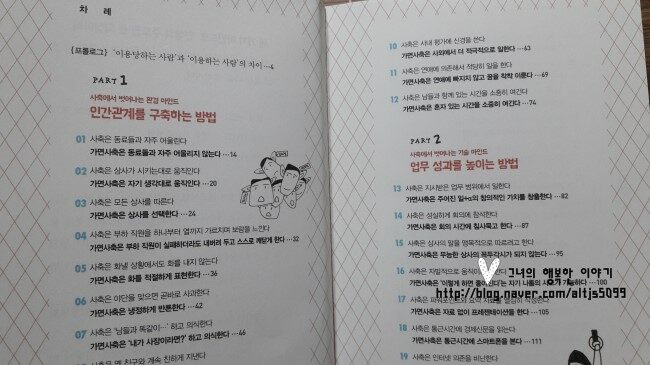 차 례
{프롤로그} '이용당하는 사람'과 '이용하는 사람'의 차이 …4
PART 1
사축에서 벗어나는 환경 마인드
인간관계를 구축하는 방법
01 사축은 동료들과 자주 어울린다
가면사축은 동료들과 자주 어울리지 않는다 …14
02 사축은 상사가 시키는대로 움직인다
가면사축은 자기 생각대로 움직인다 …20
03 사축은 모든 상사를 따른다
가면사축은 상사를 선택한다 …24
04 사축은 부하 직원을 하나부터 열까지 가르치며 보람을 느낀다
가면사축은 부하 직원이 실패하더라도 내버려 두고 스스로 깨닫게 한다 …32
05 사축은 화낼 상황에서도 화를 내지 않는다
가면사축은 화를 적절하게 표현한다 …36
06 사축은 야단을 맞으면 곧바로 사과한다
가면사축은 냉정하게 반론한다 …42
07 사축은 '남들과 똑같이…' 하고 의식한다
가면사축은 '내가 사장이라면?' 하고 의식한다 …46
사축은 옛 친구와 계속 친하게 지낸다
10 사축은 사내 평가에 신경을 쓴다
가면사축은 사외에서 더 적극적으로 일한다 …63
11 사축은 연애에 의존해서 적당히 일을 한다
가면사축은 연애에 빠지지 않고 꿈을 착착 이룬다 …69
12 사축은 남들과 함께 있는 시간을 소중히 여긴다
가면사축은 혼자 있는 시간을 소중히 여긴다 …74
PART 2
사축에서 벗어나는 기술 마인드
업무 성과를 높이는 방법
13 사축은 지시받은 업무 범위에서 일한다
가면사축은 주어진 일+α의 창의적인 가치를 창출한다 …82
14 사축은 성실하게 회의에 참석한다
가면사축은 회의 시간에 침묵하고 있는다 …87
15 사축은 상사의 말을 맹목적으로 따르려고 한다
가면사축은 무능한 상사의 꼭두각시가 되지 않는다 …95
16 사축은 자발적으로 움직
가면사축은 '이렇게 하면 움직인다'는 자기 나름의 가능하다 …100
17 사축은 파워포인트
가면사축은 자료 없이 프레젠테이션을 한다 …105
18 사축은 통근시간에 경제신문을 읽는다
가면사축은 통근시간에 스마트폰을 본다 …111
19 사축은 인터넷 의존을 비난한다
그녀의 해보하 이야기
http://blog.naver.com/altjs5099